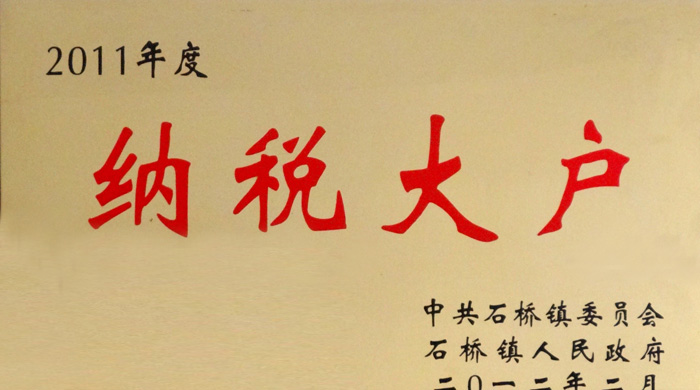 2011年度
纳税大户
中共石桥镇委员会
石桥镇人民政府
二〇一二年二月